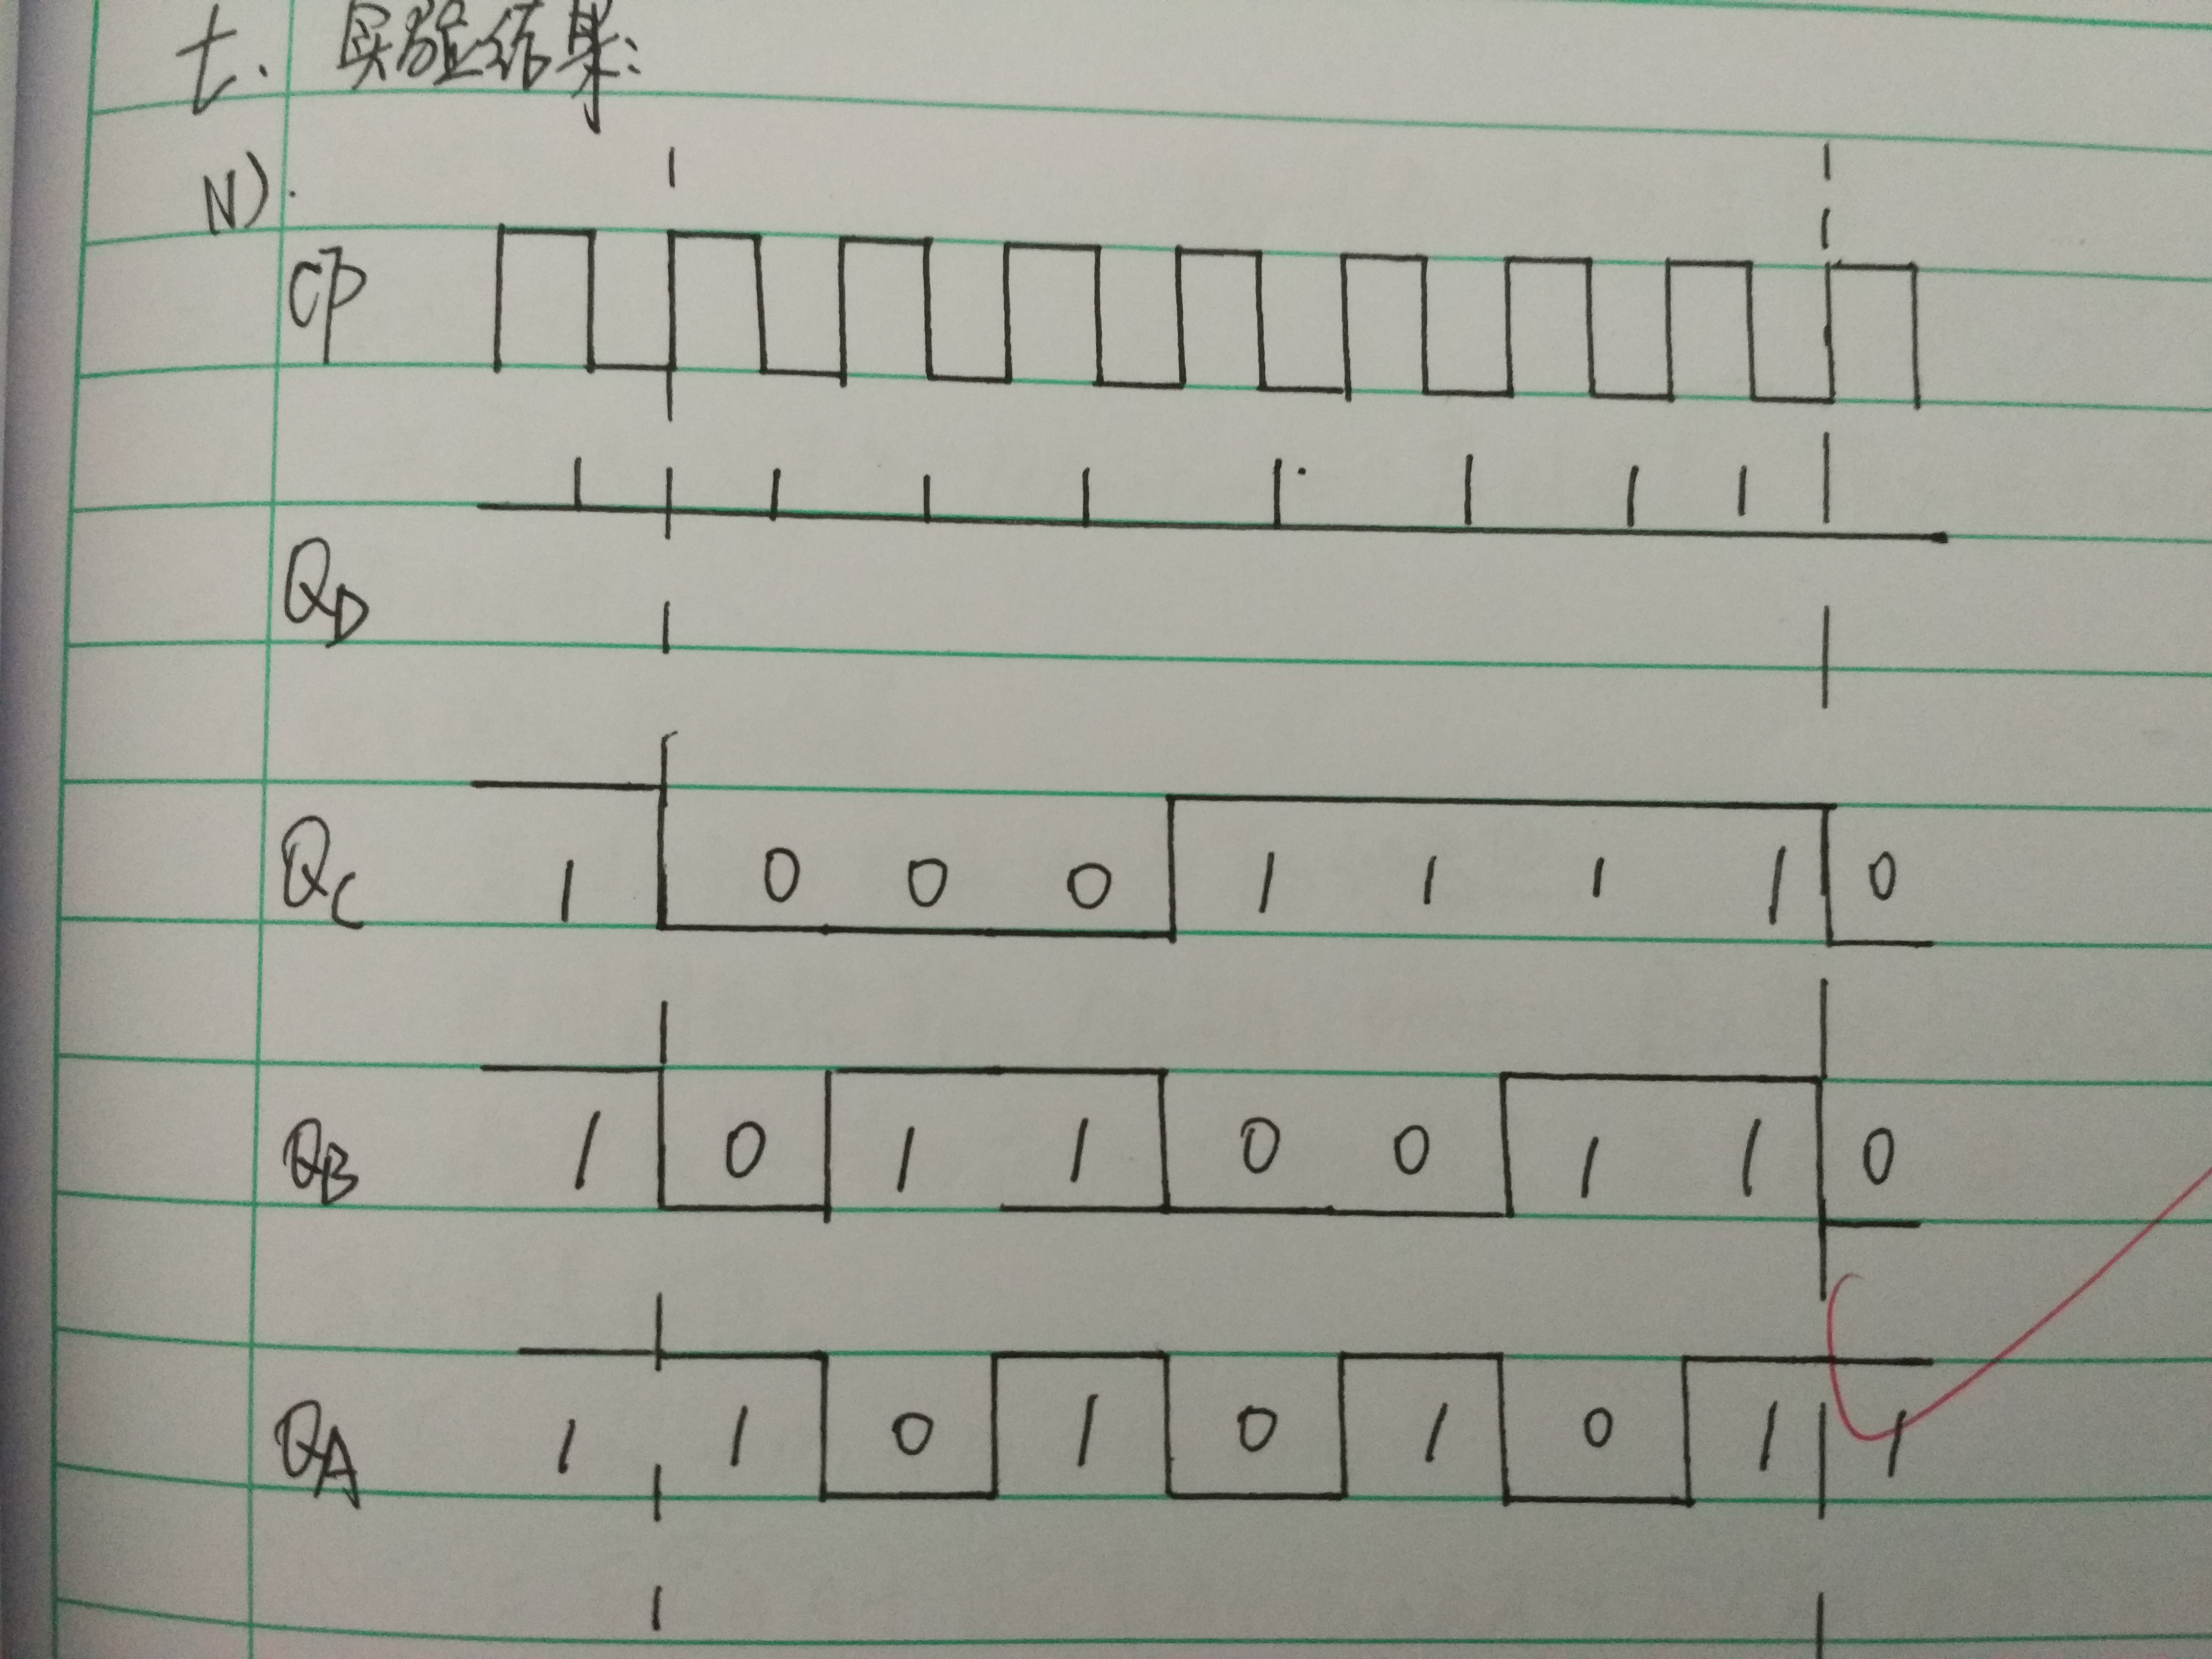 七. 实验结果:
N).
CP
1 1 1 1 1 1 1 1
QD
QC 1 0 0 0 1 1 1 1 0
QB 1 0 1 1 0 0 1 1 0
QA 1 1 0 1 0 1 0 1 1